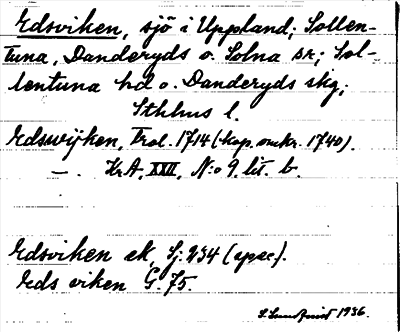 Edsviken, sjö i Uppland; Sollen-
tuna, Danderyds o. Solna sn; Sol-
lentuna hd o. Danderyds skg;
Sthlms l.
Edswijken, Trol. 1714 (kop. omkr. 1740).
—. KrA, XXII, N:o 9. lit. b.
Edsviken ek, Sj: 234 (spec).
Eds viken G. 75.
S. Lundqvist 1936.